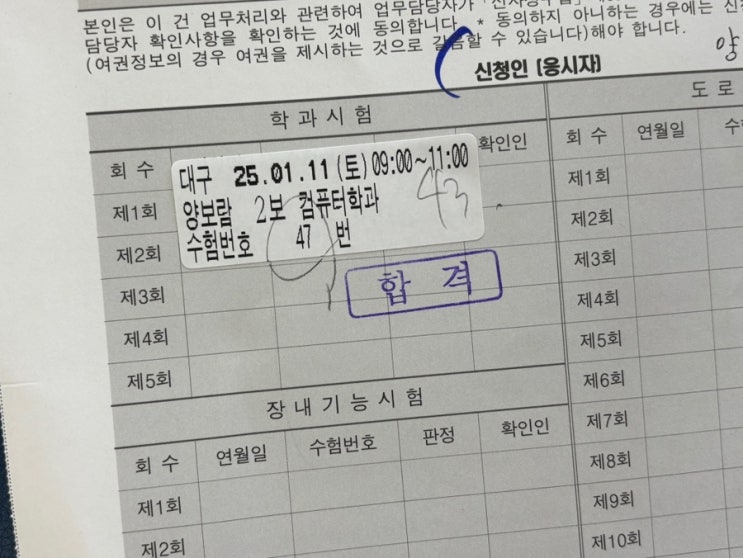 본인은 이 건 업무처리와 관련하여 업무담당자가
담당자 확인사항을 확인하는 것에 동의합니다. * 동의하지 아니하는 경우에는
(여권정보의 경우 여권을 제시하는 것으로 갈음할 수 있습니다)해야 합니다.
신청인 (응시자)
양
학 과 시 험
도 로
회 수
확인인
회 수 연월일
대구 25.01.11 (토) 09:00~11:00
양보람 2보 컴퓨터학과
43
수험번호 47 번
제1회
제2회
제3회
제4회
제5회
합 격
제1회
제2회
제3회
제4회
제5회
제6회
제7회
제8회
제9회
제10회
장 내 기 능 시 험
회 수 연월일 수험번호 판정 확인인
제1회
제2회